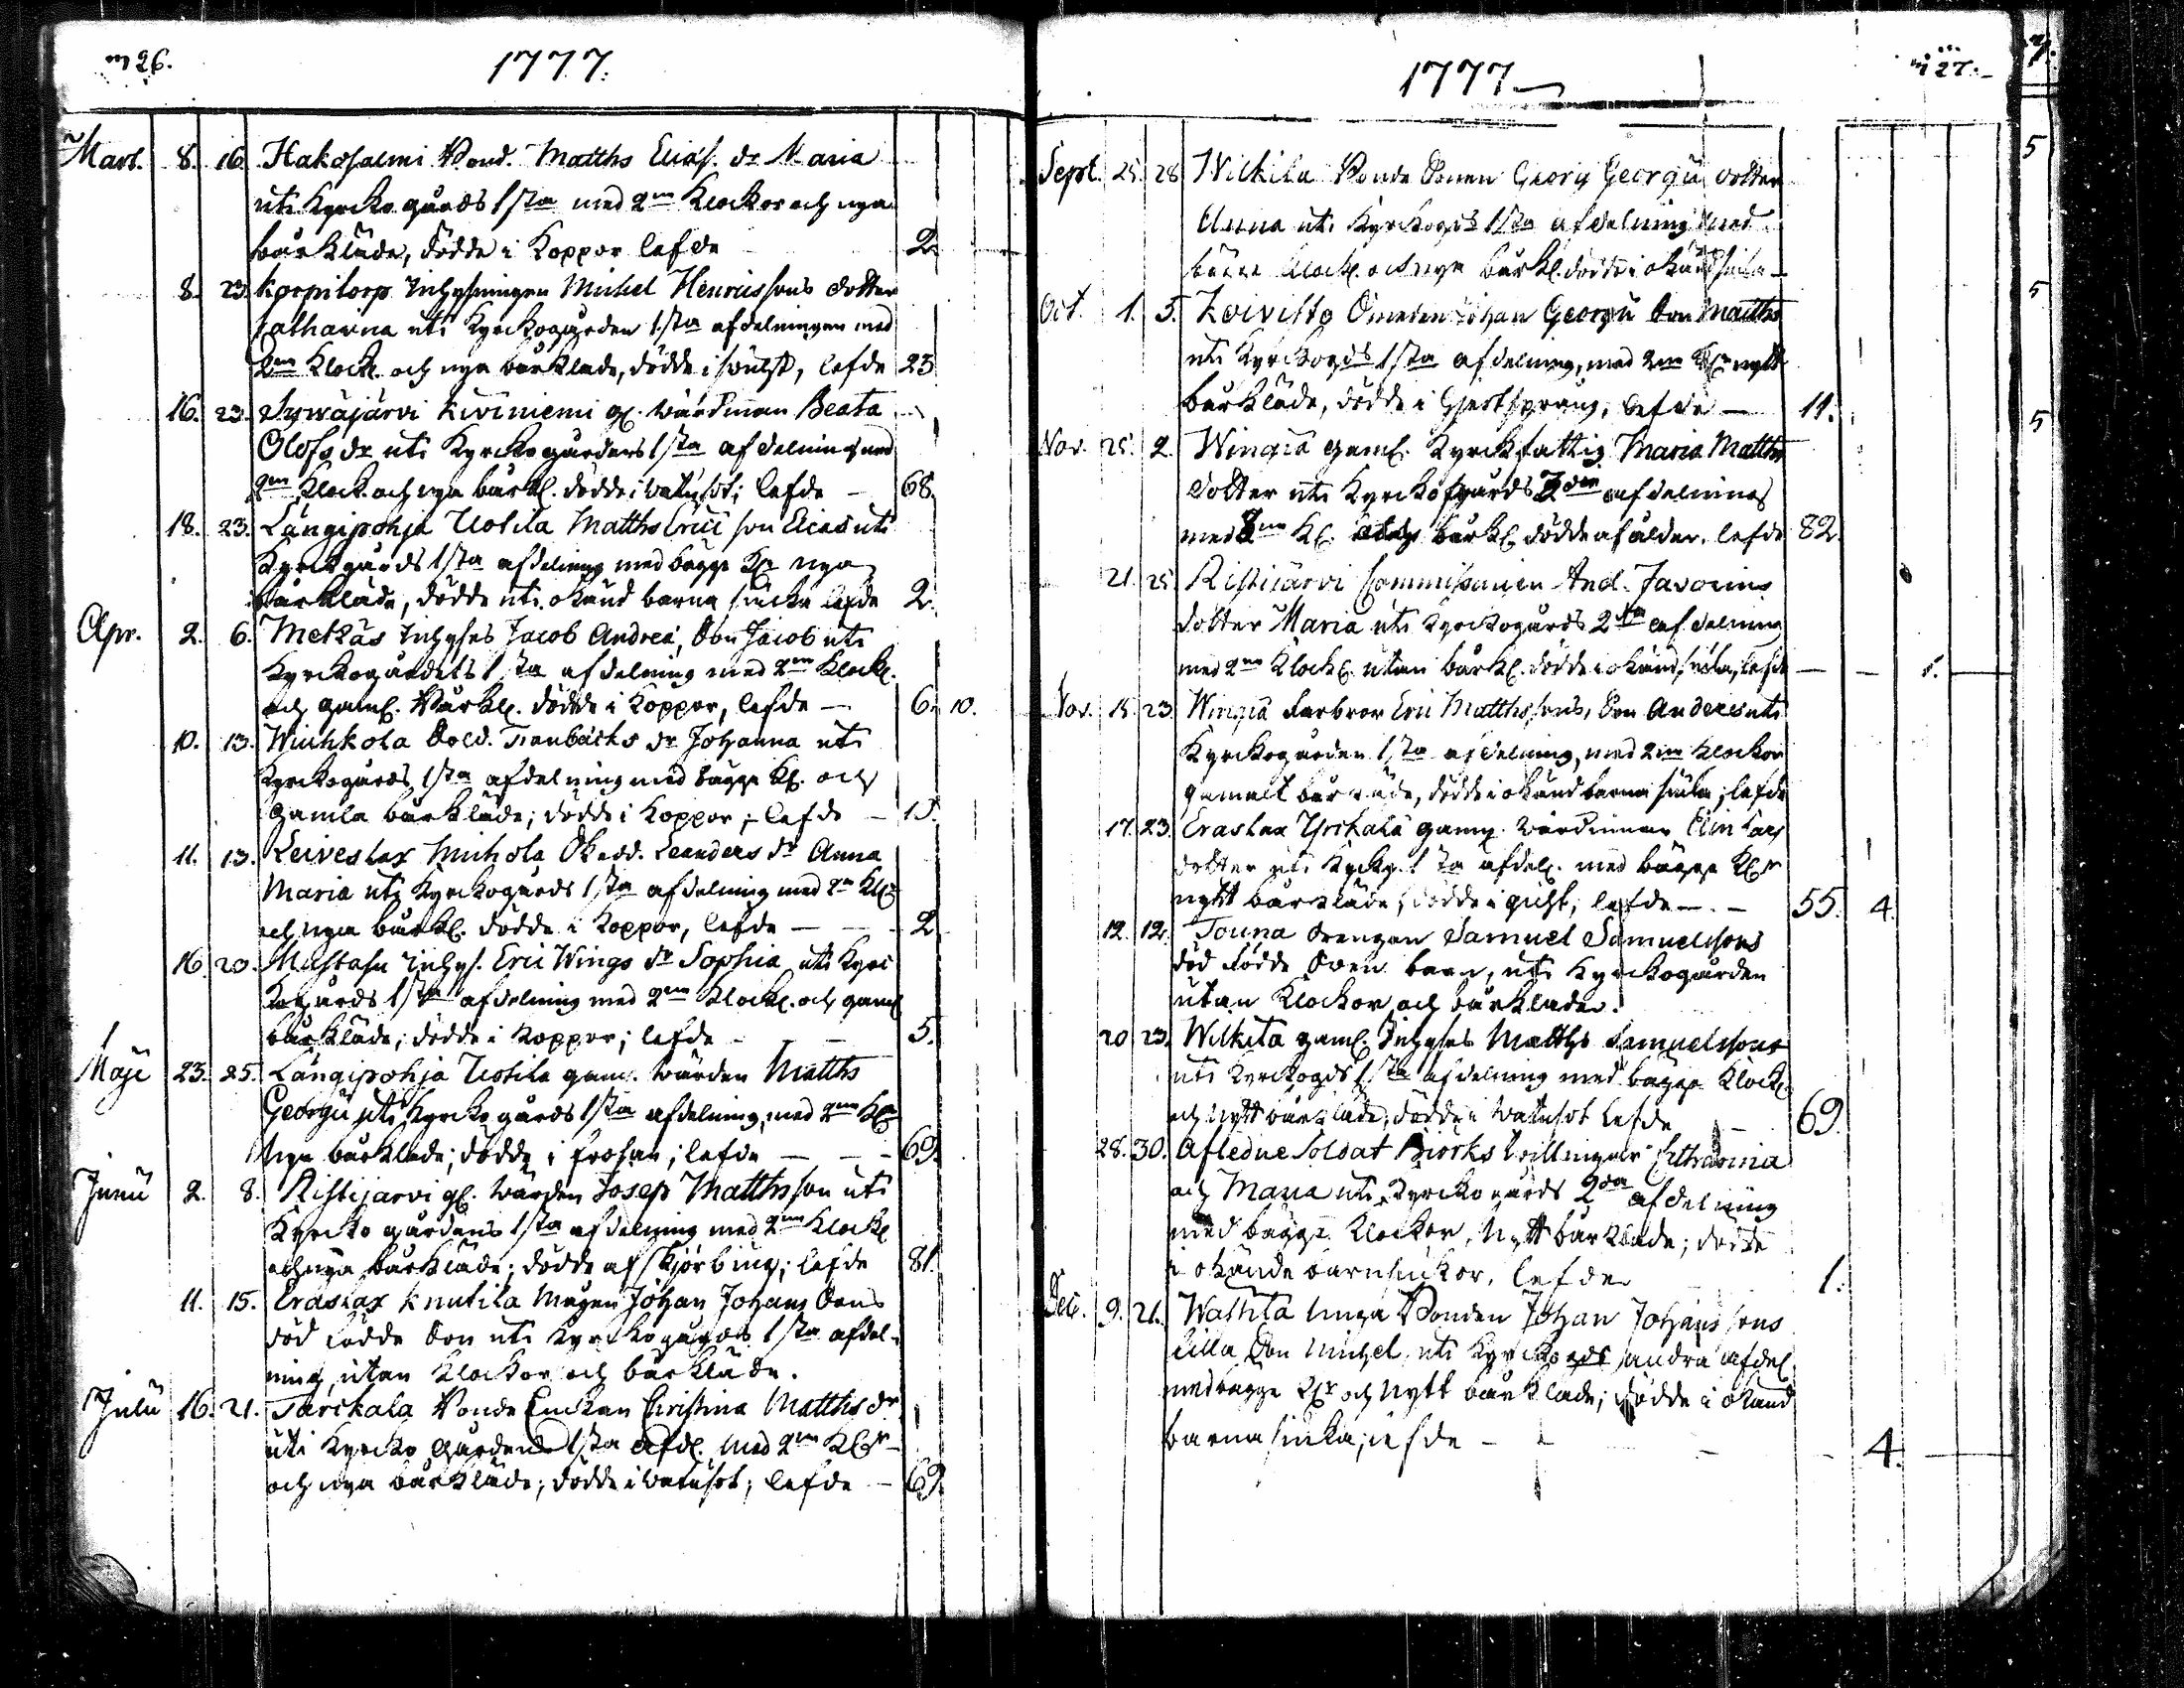 m 26.
1777.
Mart. 8. 16. Hakosalmi Bond. Matths Elias. dr Maria
uti Kyrko gårds 1sta med 2ne Klockor och nya
bårkläde, dödde i Koppor lefde 2.
8. 23. Korpitorp Inhysningen Michel Henricssons dotter
Catharina uti Kyrckogården 1sta afdelningen med
2ne Klock. och nya bårkläde, dödde i swulst, lefde 23
16. 23. Syväjärvi Kiviniemi gl. wärdinnan Beata
Olofs dr uti Kyrckogårdens 1sta afdelning med
2ne Klock. och nya bårkl. dödde i watusot; lefde — 68.
18. 23. Långipohja Uotila Matths Erici son Elias uti
Kyrckgårds 1sta afdelning med bägge Kl. nya
bårkläde, dödde uti okänd barna siucka lefde 2.
Apr. 2. 6. Mekäs Inhyses Jacob Andreæ, Son Jacob uti
Kyrckogårdets 1sta afdelning med 2ne Klock.
och gaml. Bårkl. dödde i Koppor, lefde — 6. 10.
10. 13. Wuihkola Sold. dr Johanna uti
Kyrckogårds 1sta afdelning med bägge Kl. och
gamla bårkläde; dödde i Koppor; lefde — 15.
11. 13. Leiveslax Mickola Leanders dr Anna
Maria uti Kyrckogårds 1sta afdelning med 2ne Kl.
och nya bårkl. dödde i Koppor, lefde — 2
16. 20. Inhys. Eric Wings dr Sophia uti Kyrc
kogårds 1sta afdelning med 2ne Klock. och gaml.
bårkläde; dödde i Koppor; lefde — 5.
Maji 23. 25. Långipohja Uotila gam. wärden Matths
Georgii uti Kyrckogårds 1sta afdelning, med 2ne Kl.
Nya bårkläde; dödde i frosan; lefde — 69.
Junii 2. 8. Ristijärvi gl. wärden Josep Matthsson uti
Kyrcko gårdens 1sta afdelning med 2ne Klock.
och nya bårkläde; dödde af skjörbiug; lefde 81.
11. 15. Eraslax Knutila Mågen Johan Johans Sons
död födde Son uti Kyrckogårds 1sta afdel-
ning, utan Klockor och bårkläde.
Julii 16. 21. Tarckala Bonde Enckan Christina Matths dr
uti Kyrcko Gårdens 1sta afd. med 2ne Klr
och nya bårkläde; dödde i watusot; lefde — 69.
m 27.
1777
Sept. 25. 28 Wilkila Bonde Sonen Georg Georgii dotter
Anna uti Kyrckogds 1sta afdelning med
bägge Klock. och nya bårkl. dödde i okänd siuka
Oct. 1. 5. Koivisto Smeden Johan Georgii Son Matths
uti Kyrckogds 1sta afdelning, med 2ne Kl. nytt
bårkläde, dödde i Hjertsprång, lefde — 11.
Nov. 25. 2. Wingiä gaml. Kyrckfattig Maria Matths
dotter uti Kyrckogårds afdelning
med 2ne Kl. bårkl. dödde af ålder, lefde 82
21. 25. Ristijärvi Commissarien And. Favorins
dotter Maria uti Kyrckogårds 2dra afdelning
med 2ne Klock. utan bårkl. dödde i okänd siuka, lefde — 5.
Nov. 15. 23. Wingiä farbror Eric Matthssons, Son Anders uti
Kyrckogården 1sta afdelning, med 2ne Klockor
gamalt bårkläde, dödde i okänd barna siuka; lefde
17. 23. Eraslax Yrickälä gaml. wärdinnan Elin Lars
dotter uti Kyrckg. 1sta afdel. med bägge Klr
nytt bårkläde, dödde i gicht, lefde — 55. 4.
12. 12. Touna drengen Samuel Samuelssons
död födde Sven barn, uti Kyrckogården
utan Klockor och bårkläde.
20 23. Wilkila gaml. Inhyses Matths Samuelssons
uti Kyrckogds 1sta afdelning med bägge Klock.
och nytt bårkläde, dödde i watusot lefde 69.
28. 30. Afledne Soldat Biorks twillingar Catharina
och Maria uti Kyrckogårds 2dra afdelning
med bägge Klockor, nytt bårkläde; dödde
i okände barnsiukor, lefde 1.
Dec. 9. 21. Wallila unga Bonden Johan Johanssons
lilla Son Michel uti Kyrckogds andra afdel.
med bägge Klr och Nytt bårkläde; dödde i okänd
barnasiuka; lefde — 4.
5
5
5